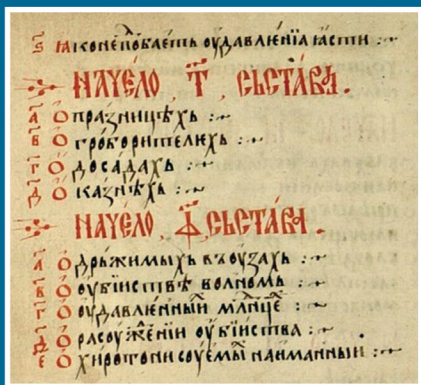 ѕ҃ ꙗко непⷣобаеть оудавлѥнїа ꙗсти :~
Начело, т҃, сьстава.
а҃ О празницѣхь :~
в҃ О гроборителихь :~
г҃ О досадахь :~
д҃ О казнѣхь :~
Начело, ѱ҃, сьстава.
а҃ О дрьжимыхь въ оузахь :~
в҃ О оубїиствѣ волномь :~
г҃ О оудавлѥннѣи млⷣнце :~
д҃ О расоужⷣении оубїиства :~
е҃ О хиротони соуемыⷯ наиманныи :~